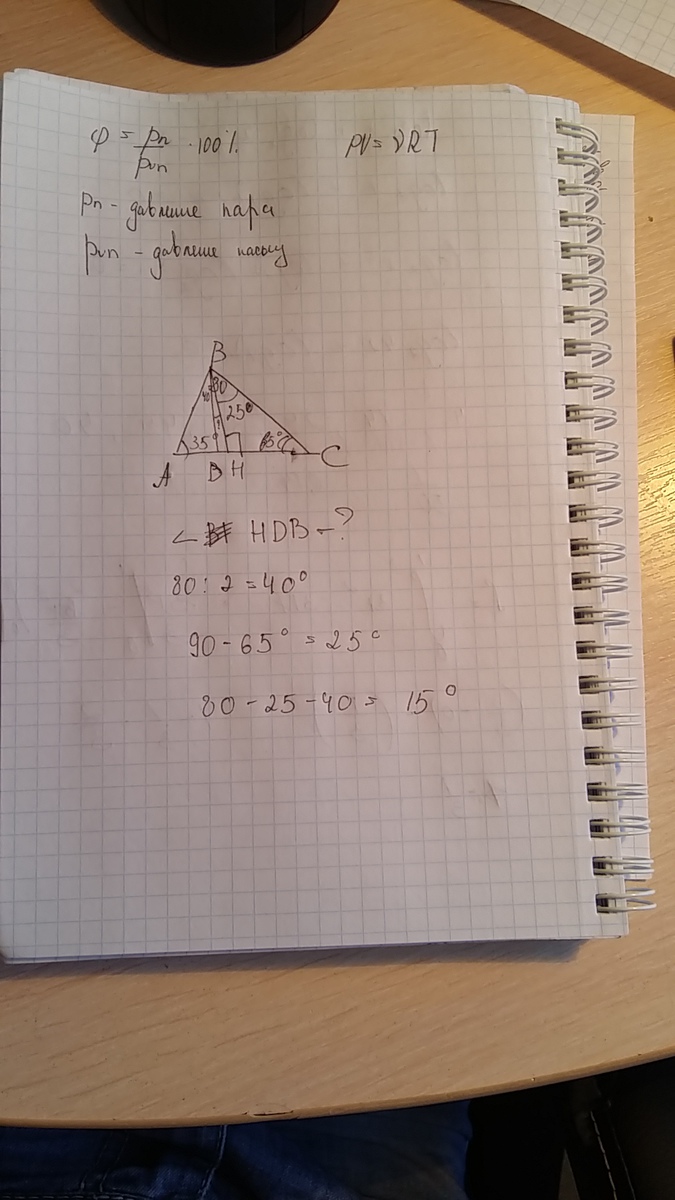 φ = pп/pнп · 100%
pV = νRT
pп - давление пара
pнп - давление насыщ
B
40 80
25°
35° 65°
A D H C
∠ HDB - ?
80 : 2 = 40°
90 - 65° = 25°
80 - 25 - 40 = 15°